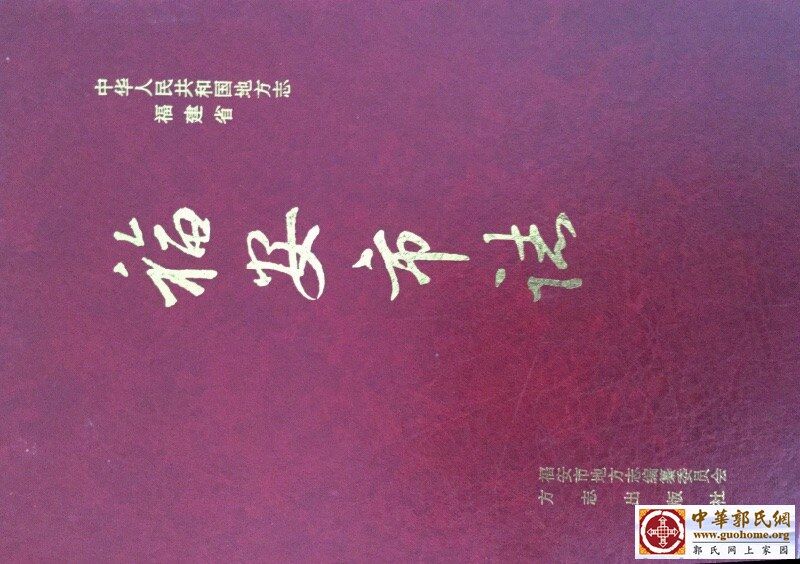 中华人民共和国地方志
福建省
福安市志
福安市地方志编纂委员会
方志出版社
中華郭氏網
www.guohome.org
郭氏网上家园